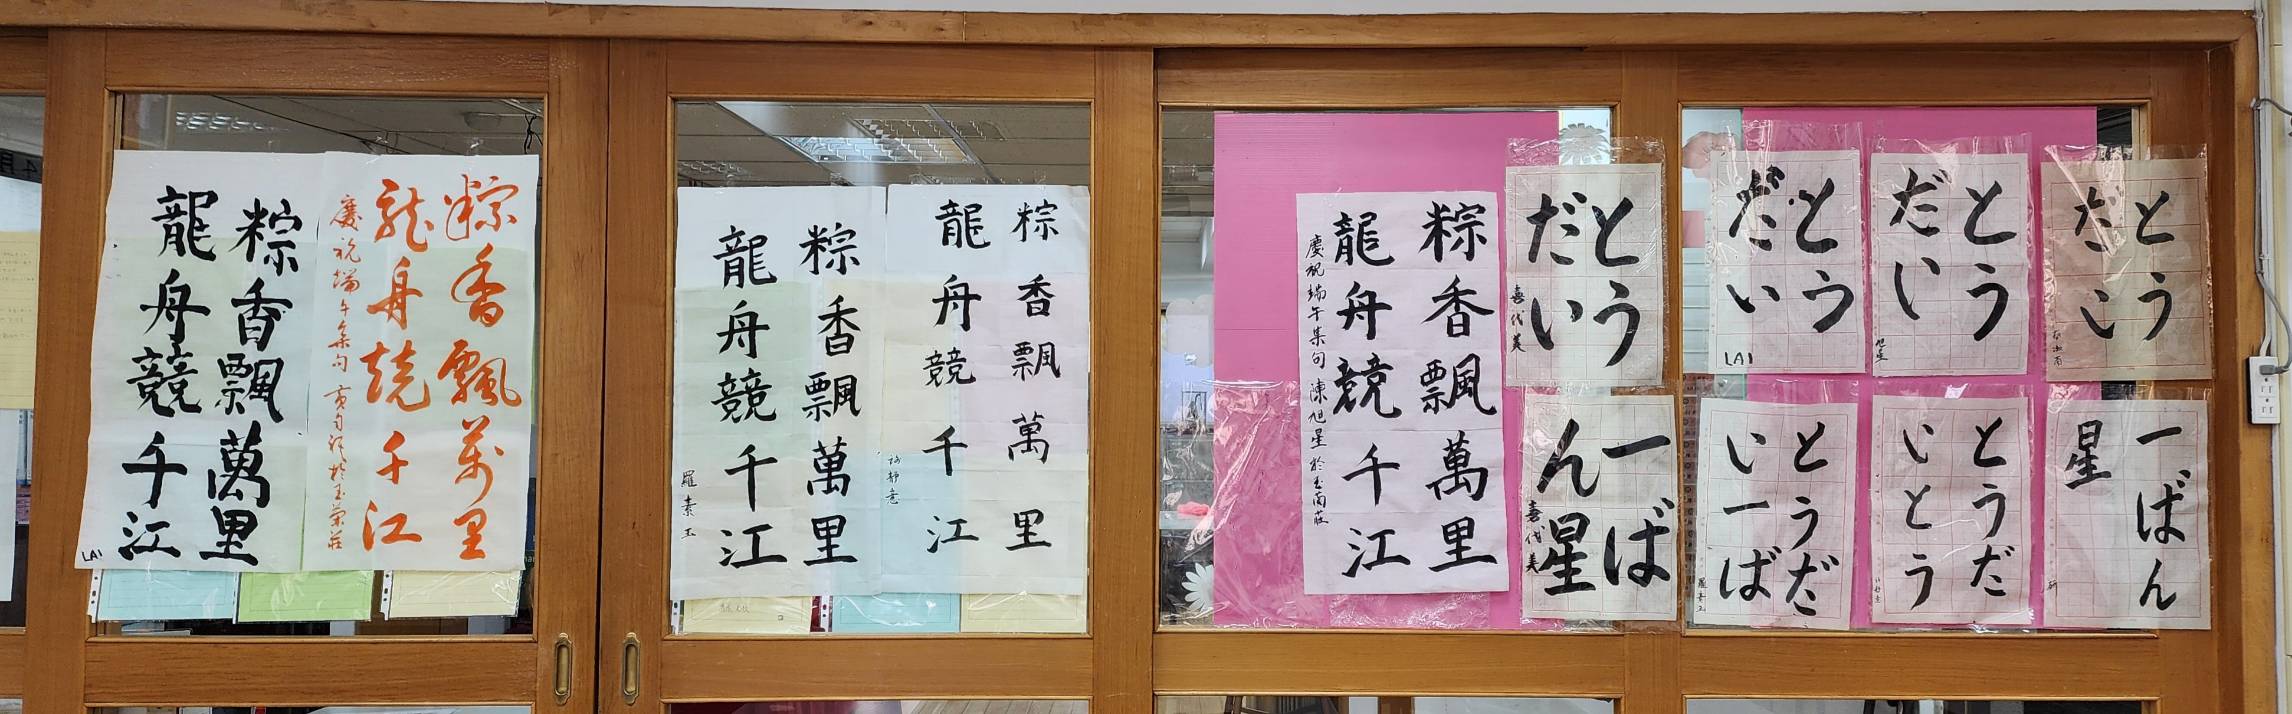 粽香飄萬里
龍舟競千江
LAI
粽香飄萬里
龍舟競千江
慶祝端午集句
粽香飄萬里
龍舟競千江
羅素玉
粽香飄萬里
龍舟競千江
粽香飄萬里
龍舟競千江
慶祝端午集句 陳旭星於玉蘭莊
とう
だい
喜代美
とう
だい
LAI
とう
だい
旭星
とう
だい
一ば
ん星
喜代美
とうだ
い一ば
羅素玉
とうだ
いとう
一ばん
星